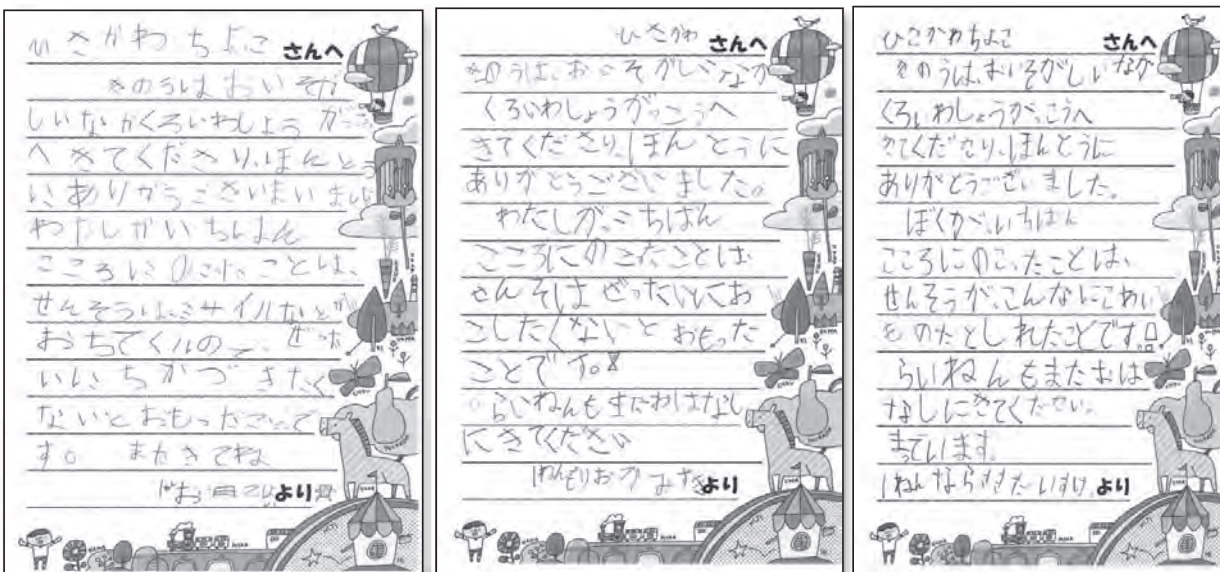 ひさかわ ちよこ さんへ
きのうは おいそが
しいなかくろいわしょう がっこう
へ きてくださり、ほんとう
に ありがとうございまいました
わたしが いちばん
こころに のこった ことは、
せんそうは、ミサイルなどが
おちてくるので、ぜった
いに ちかづきたく
ないとおもったことで
す。 またきてね
より
ひさかわ さんへ
きのうは、おいそがしいなか
くろいわしょうがっこうへ
きてくださり、ほんとうに
ありがとうございました。
わたしがいちばん
こころにのこたことは
せんそはぜったいにお
こしたくないとおもった
ことです。
らいねんもまたおはなし
にきてください
1ねんもりおか みずきより
ひさかわちよこ さんへ
きのうは、おいそがしいなか
くろいわしょうがっこうへ
きてくださり、ほんとうに
ありがとうございました。
ぼくが、いちばん
こころにのこったことは、
せんそうが、こんなにこわい
ものだとしれたことです。
らいねんもまたおは
なしにきてください。
まっています。
1ねんならさきだいすけ より